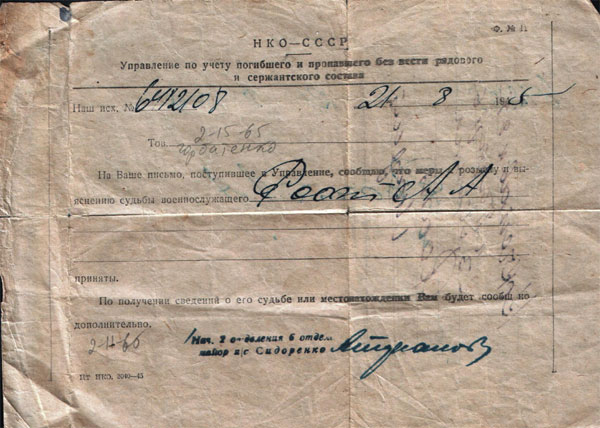 Ф. № 11
НКО—СССР
Управление по учету погибшего и пропавшего без вести рядового
и сержантского состава
Наш исх. № 642108 21 8 1945
Тов.
2-15-65
На Ваше письмо, поступившее в Управление, сообщаю, что меры к розыску и вы-
яснению судьбы военнослужащего А А
приняты.
По получении сведений о его судьбе или местонахождении Вам будет сообщено
дополнительно.
2-11-65
Нач. 2 отделения 6 отдел
майор а/с Сидоренко
ЦТ НКО. 2040—45